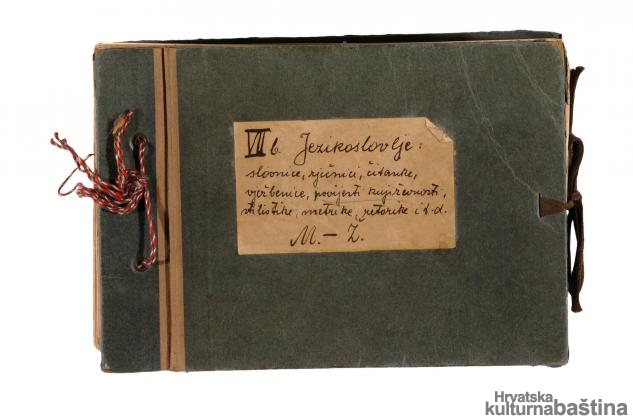 VII b. Jezikoslovlje:
slovnice, rječnici, čitanke,
vježbenice, povijesti književnosti,
stilistike, metrike, retorike i t. d.
M. – Ž.
Hrvatska
kulturnabaština